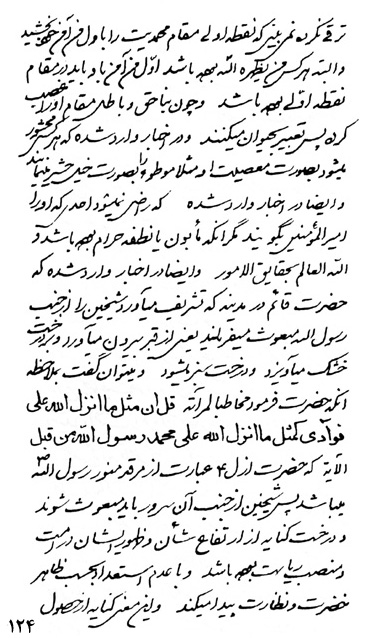 ترقی نکرده نمی بینی که نقطه اولی مقام محمدیت را باول من آمن بخشید
والبته هر کس من یظهره الله بوده باشد اول من آمن باو باید در مقام
نقطه اولی بوده باشد و چون بناحق و باطل مقام او را غصب
کرده پس تعبیر بحیوان میکنند و در اخبار وارد شده که هر کس محشور
میشود بصورت معصیت او مثلا موطوء را بصورت حشر مینمایند
و ایضا در اخبار وارد شده که راضی نمیشود احدی که او را
امیرالمؤمنین بگویند مگر آنکه مأبون یا نطفه حرام بوده باشد و
الله العالم بحقایق الامور و ایضا در اخبار وارد شده که
حضرت قائم در مدینه که تشریف میآورد شیخین را از جنب
رسول الله مبعوث میفرمایند یعنی از قبر بیرون میآورد و بر درخت
خشک میآویزد و درخت سبز میشود و میتوان گفت بملاحظه
آنکه حضرت فرمود مخاطبا لمرآته قل ان مثل ما انزل الله علی
فوادی کمثل ما انزل الله علی محمد رسول الله من قبل
الآیة که حضرت ازل ۴ عبارت از مرقد منور رسول الله ص
میباشد پس شیخین از جنب آن سرور باید مبعوث شوند
و درخت کنایه از ارتفاع شأن و ظهور ایشان در امت
و منصب ریاست بوده باشد و با عدم استعداد بحسب ظاهر
خضرت و نظارت پیدا میکند و این معنی کنایه از حصول
۱۲۴